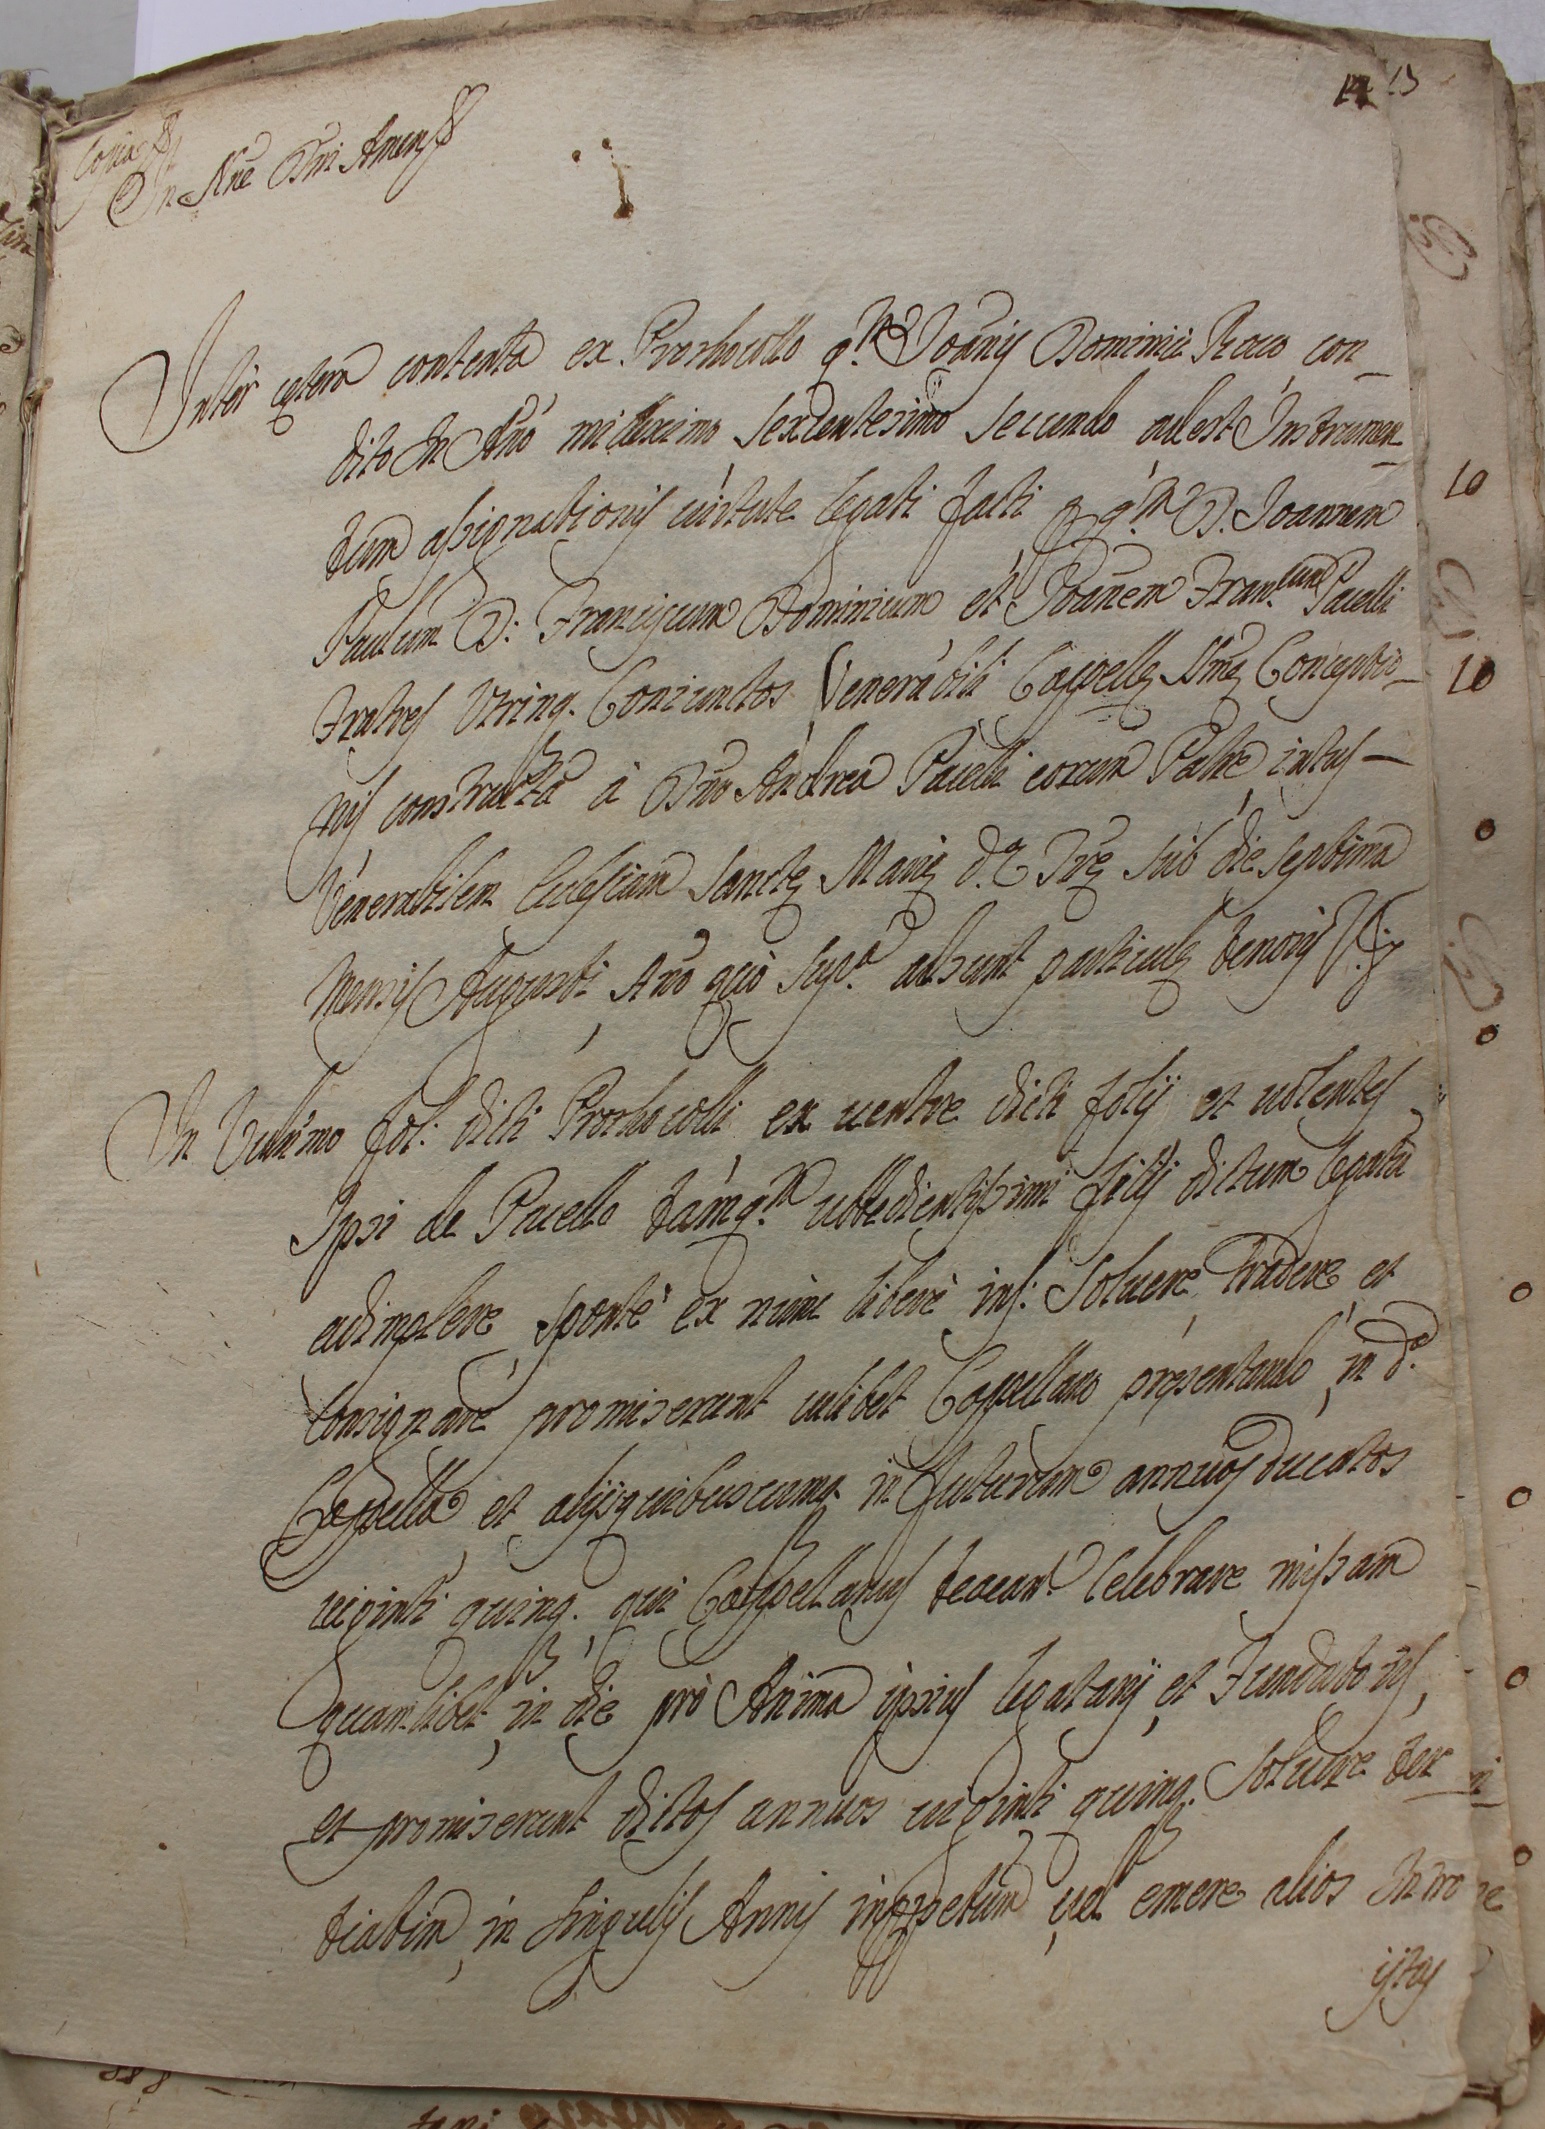 14 13
Copia
In Nñe Dñi Amen
Inter cętera contenta ex Prothocollo q.m Joañis Dominici Roco con-
dito In Año millesimo sexcentesimo secundo adest Instrumen-
tum assignationis uirtute legati facti q.m D. Joannem
Paulum D: Franciscum Dominicum et Joañem Fran.cum Pacelli
Fratres Utrinq. Coniunctos Venerabili Cappellę Sṁę Conceptio-
nis constructa à Dño Andrea Pacelli eorum Patre intus
Venerabilem Ecclesiam Sanctę Marię d. Trę sub die septima
Mensis Augusti Año quò sup.a adsunt particulę tenoris V.z
In Vultimo fol: dicti Prothocolli ex uentre dicti folij et uolentes
Ipsi de Pacello tamq.m ubbedientissimi filij dictum legatũ
adimplere sponte ex nunc liberè ins: Soluere, tradere et
Consignare promiserunt cuilibet Cappellano presentando in d.a
Cappella et alijs quibuscumq. in futurum annuos ducatos
uiginti quinq. qui Cappellanus teneant.r Celebrare missam
quamlibet in die prò Anima ipsius legatarij et Fundatoris,
et promiserunt dictos annuos uiginti quinq. Soluere ter
tiatim in singulis Annis inperpetum uel emere alios Intro
istos